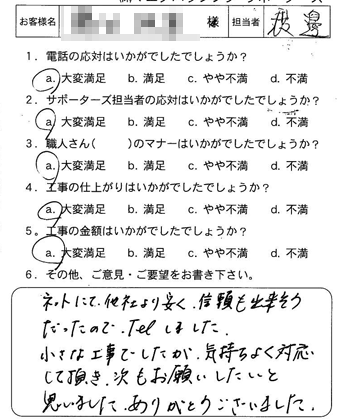 お客様名 様 担当者 渡邉
1．電話の応対はいかがでしたでしょうか？
a. 大変満足 b. 満足 c. やや不満 d. 不満
2．サポーターズ担当者の応対はいかがでしたでしょうか？
a. 大変満足 b. 満足 c. やや不満 d. 不満
3．職人さん( )のマナーはいかがでしたでしょうか？
a. 大変満足 b. 満足 c. やや不満 d. 不満
4．工事の仕上がりはいかがでしたでしょうか？
a. 大変満足 b. 満足 c. やや不満 d. 不満
5．工事の金額はいかがでしたでしょうか？
a. 大変満足 b. 満足 c. やや不満 d. 不満
6．その他、ご意見・ご要望をお書き下さい。
ネットにて、他社より安く、信頼も出来そう
だったので、Telしました。
小さな工事でしたが、気持ちよく対応
して頂き、次もお願いしたいと
思いました。ありがとうございました。